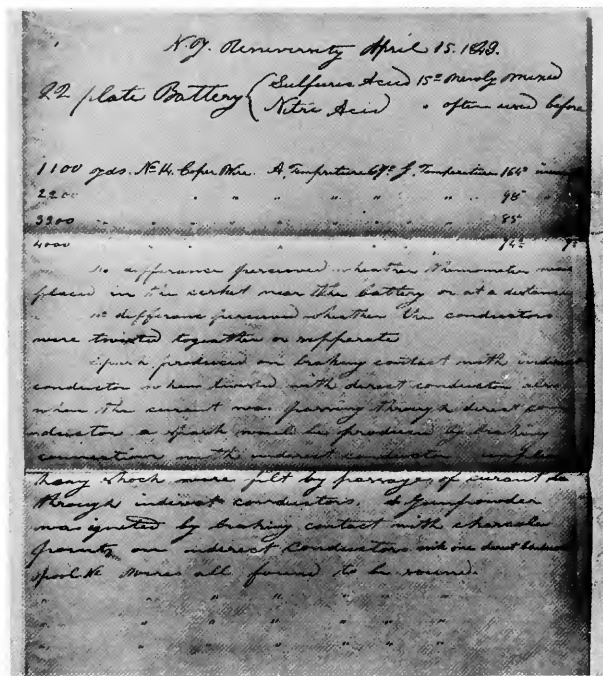 N.Y. Uneversity April 15. 1843.
22 plate Battery { Sulfuric Acid 15° newly mixed
Nitric Acid " often used before
1100 yds. No 14. Coper Wire. A. Temprature 69°. G. Temperature 164°
2200 " " " " " " " 98°
3300 " " " " " " " 85°
4000 " " " " " " 74°
No differance percieved wheather thermometer was
placed in the cerket near the battery or at a distance
no differanc percieved whether the conductors
were twisted togeather or sepperate
Spark produced on braking contact with indirect
conductor when twisted with derect conductor also
when the current was passing through derect con
ductor a spark would be produced by braking
connection with inderect conductor
shock were felt by passages of curant
through inderect conductors. Gunpowder
was ignited by braking contact with charcoale
points on inderect conductors with one derect
spool No Wires all found to be sound.
" " " " " " "
" " " " " " "
" " " " " "